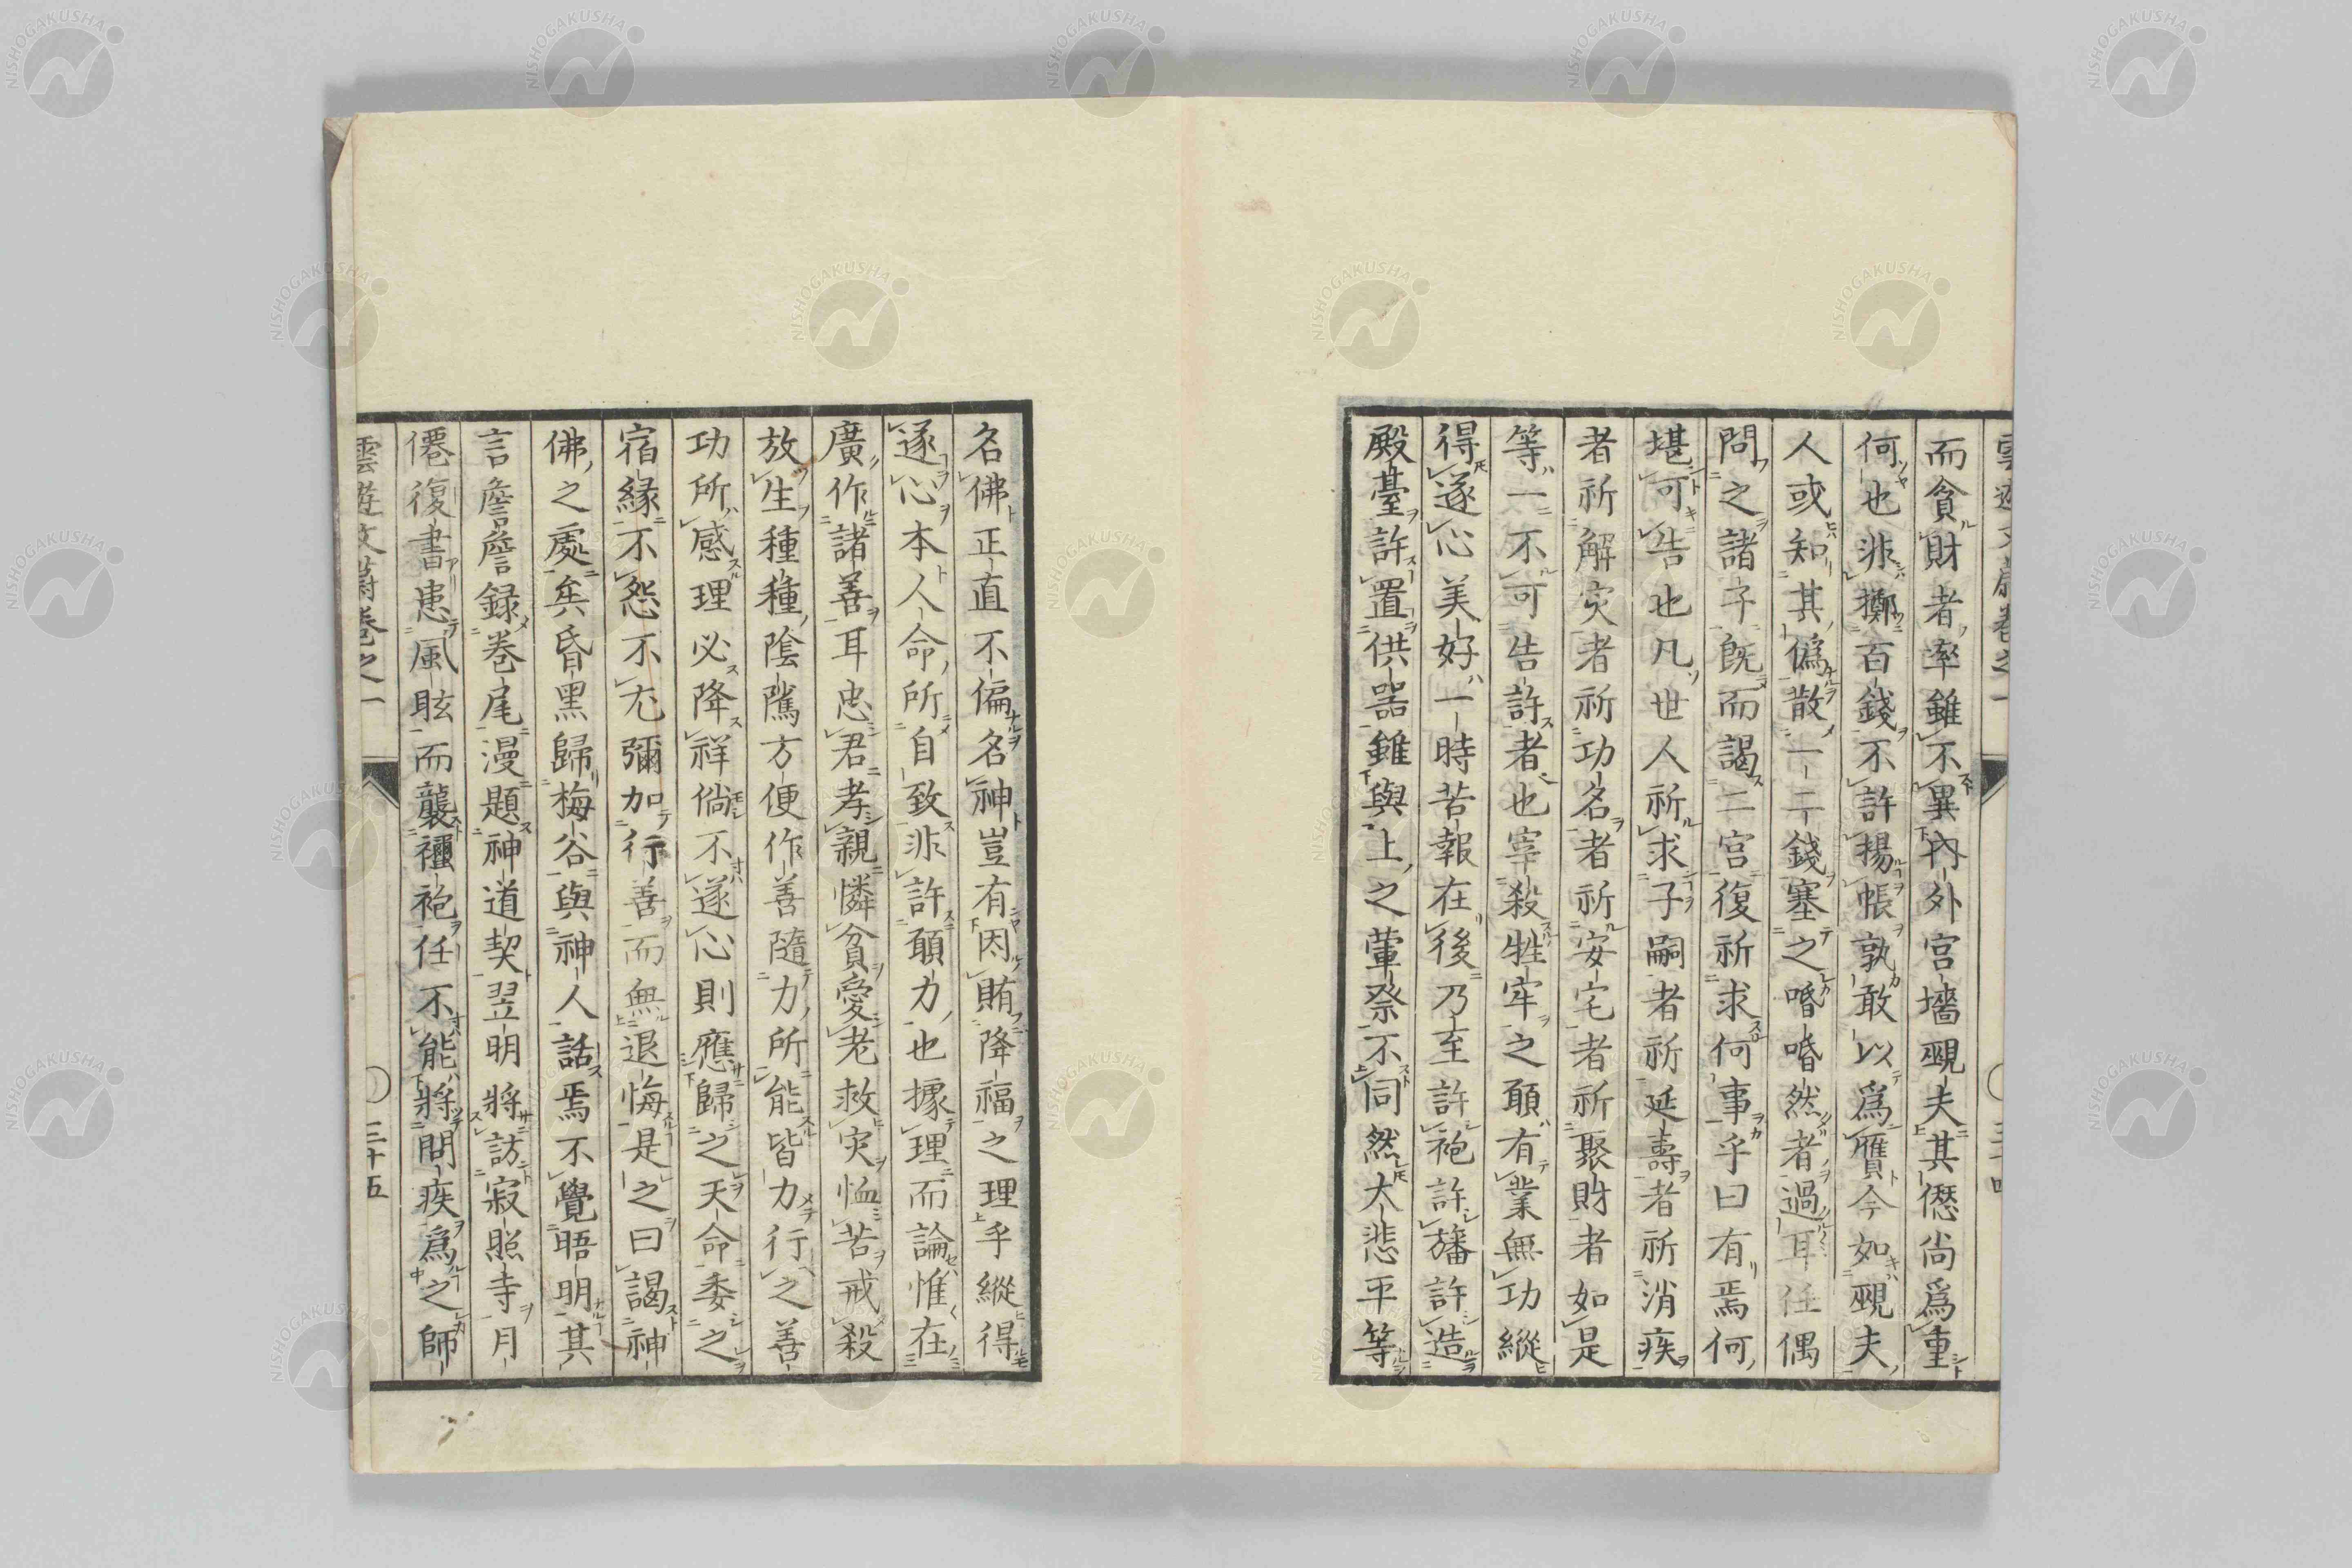 而貪財者率雖不異内外宮墻覡夫其僽尚爲重
何也非擲百錢不許揚帳孰敢以爲贋今如覡夫
人或知其僞散一二錢塞之喈喈然者過耳任偶
問之諸子既而謁二宮復祈求何事乎曰有焉何
堪可告也凡世人祈求子嗣者祈延壽者祈消疾
者祈解灾者祈功名者祈安宅者祈聚財者如是
等一不可告許者也宰殺牲牢之願有業無功縱
得遂心美好一時苦報在後乃至許袍許旛許造
殿臺許置供器雖與上之葷祭不同然大悲平等
名佛正直不偏名神豈有因賄降福之理乎縱得
遂心本人命所自致非許願力也據理而論惟在
廣作諸善耳忠君孝親憐貧愛老救灾恤苦戒殺
放生種種陰隲方便作善隨力所能皆力行之善
功所感理必降祥倘不遂心則應歸之天命委之
宿緣不怨不尤彌加行善而無退悔是之曰謁神
佛之處矣昏黑歸梅谷與神人話焉不覺晤明其
言詹詹録巻尾漫題神道契翌明將訪寂照寺月
僊復書患風眩而襲襺袍任不能將問疾爲之師
雲遊文蔚巻之一
三十五